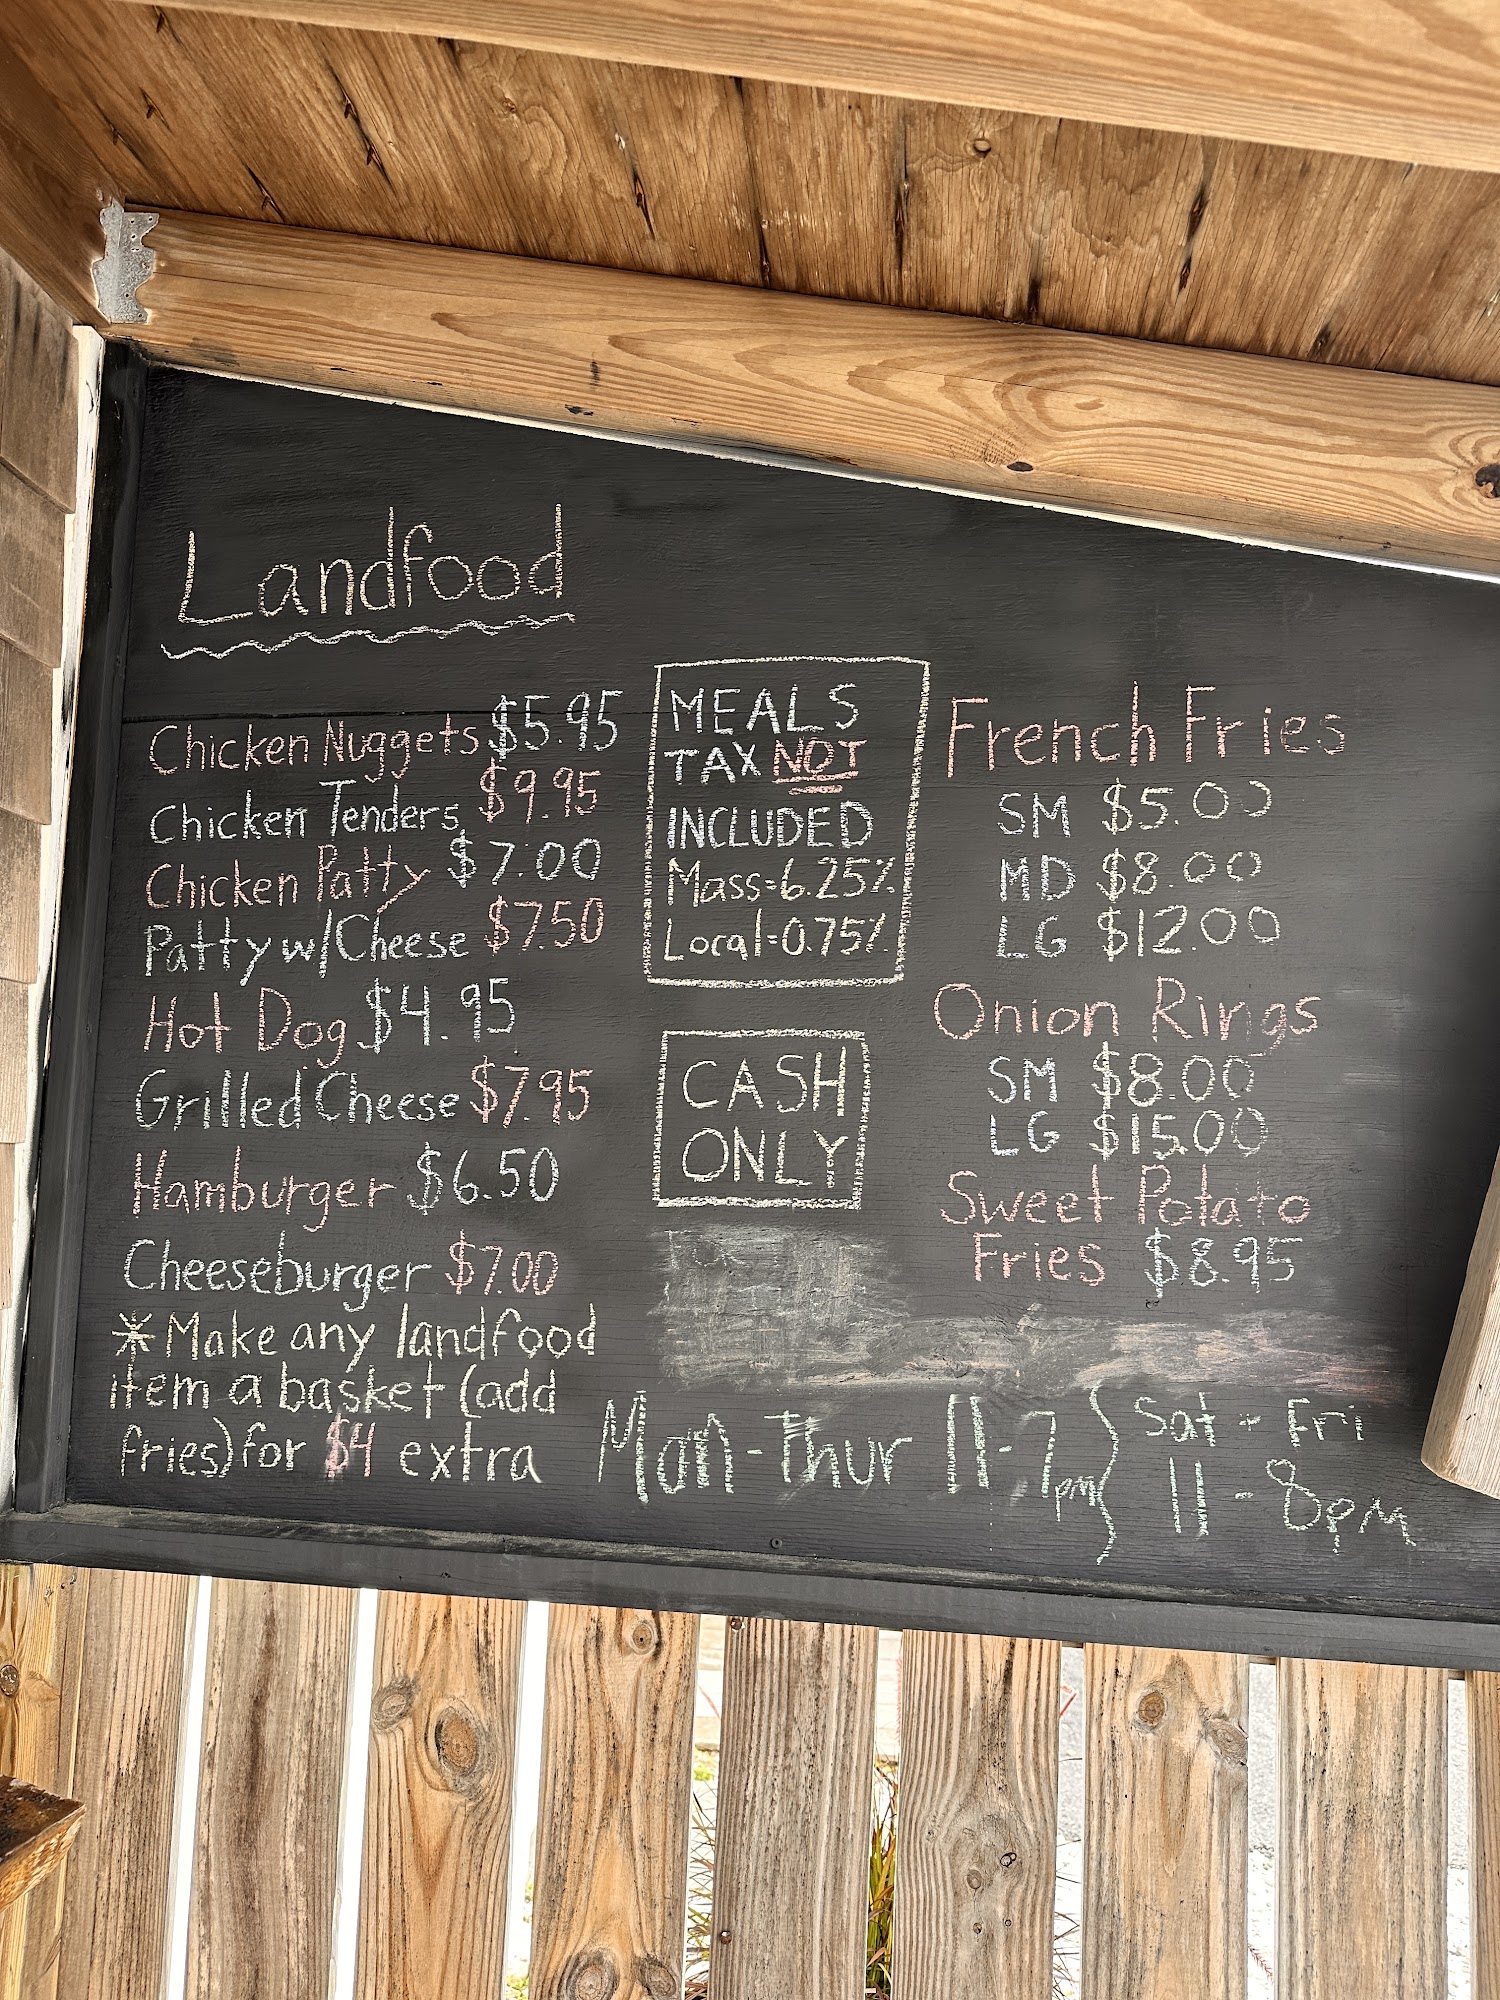 Landfood
Chicken Nuggets $5.95
Chicken Tenders $9.95
Chicken Patty $7.00
Patty w/Cheese $7.50
Hot Dog $4.95
Grilled Cheese $7.95
Hamburger $6.50
Cheeseburger $7.00
*Make any landfood
item a basket (add
fries) for $4 extra
MEALS
TAX NOT
INCLUDED
Mass=6.25%
Local=0.75%
CASH
ONLY
French Fries
SM $5.00
MD $8.00
LG $12.00
Onion Rings
SM $8.00
LG $15.00
Sweet Potato
Fries $8.95
Mon-Thur 11-7pm
Sat - Fri
11-8pm